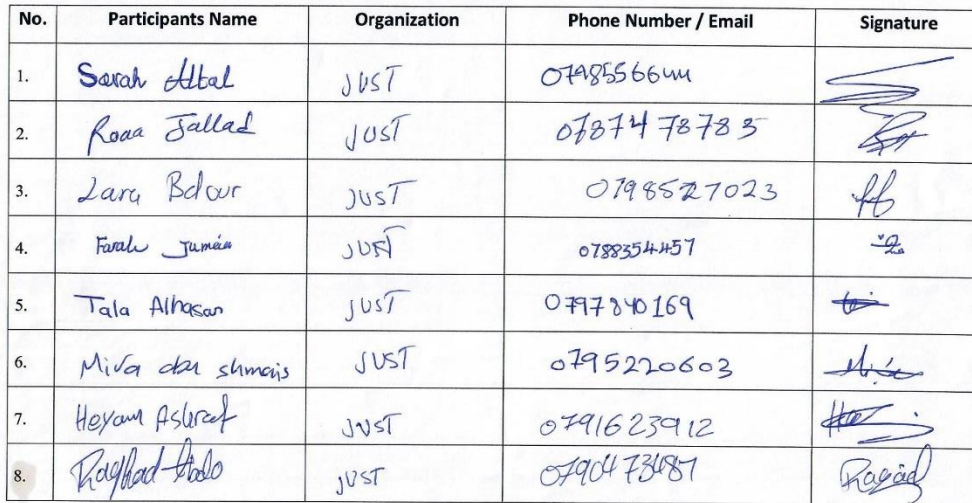 No. Participants Name Organization Phone Number / Email Signature
1. Sarah Albal JUST 0798556644
2. Roaa Jallad JUST 0787478785
3. Lara JUST 0798527023
4. Farah JUST 0788354457
5. Tala Alhasan JUST 0797840169
6. Mira abu shmais JUST 0795220603
7. Heyam Ashraf JUST 0791623912
8. Raghad Abdo JUST 0790473487 Ragad